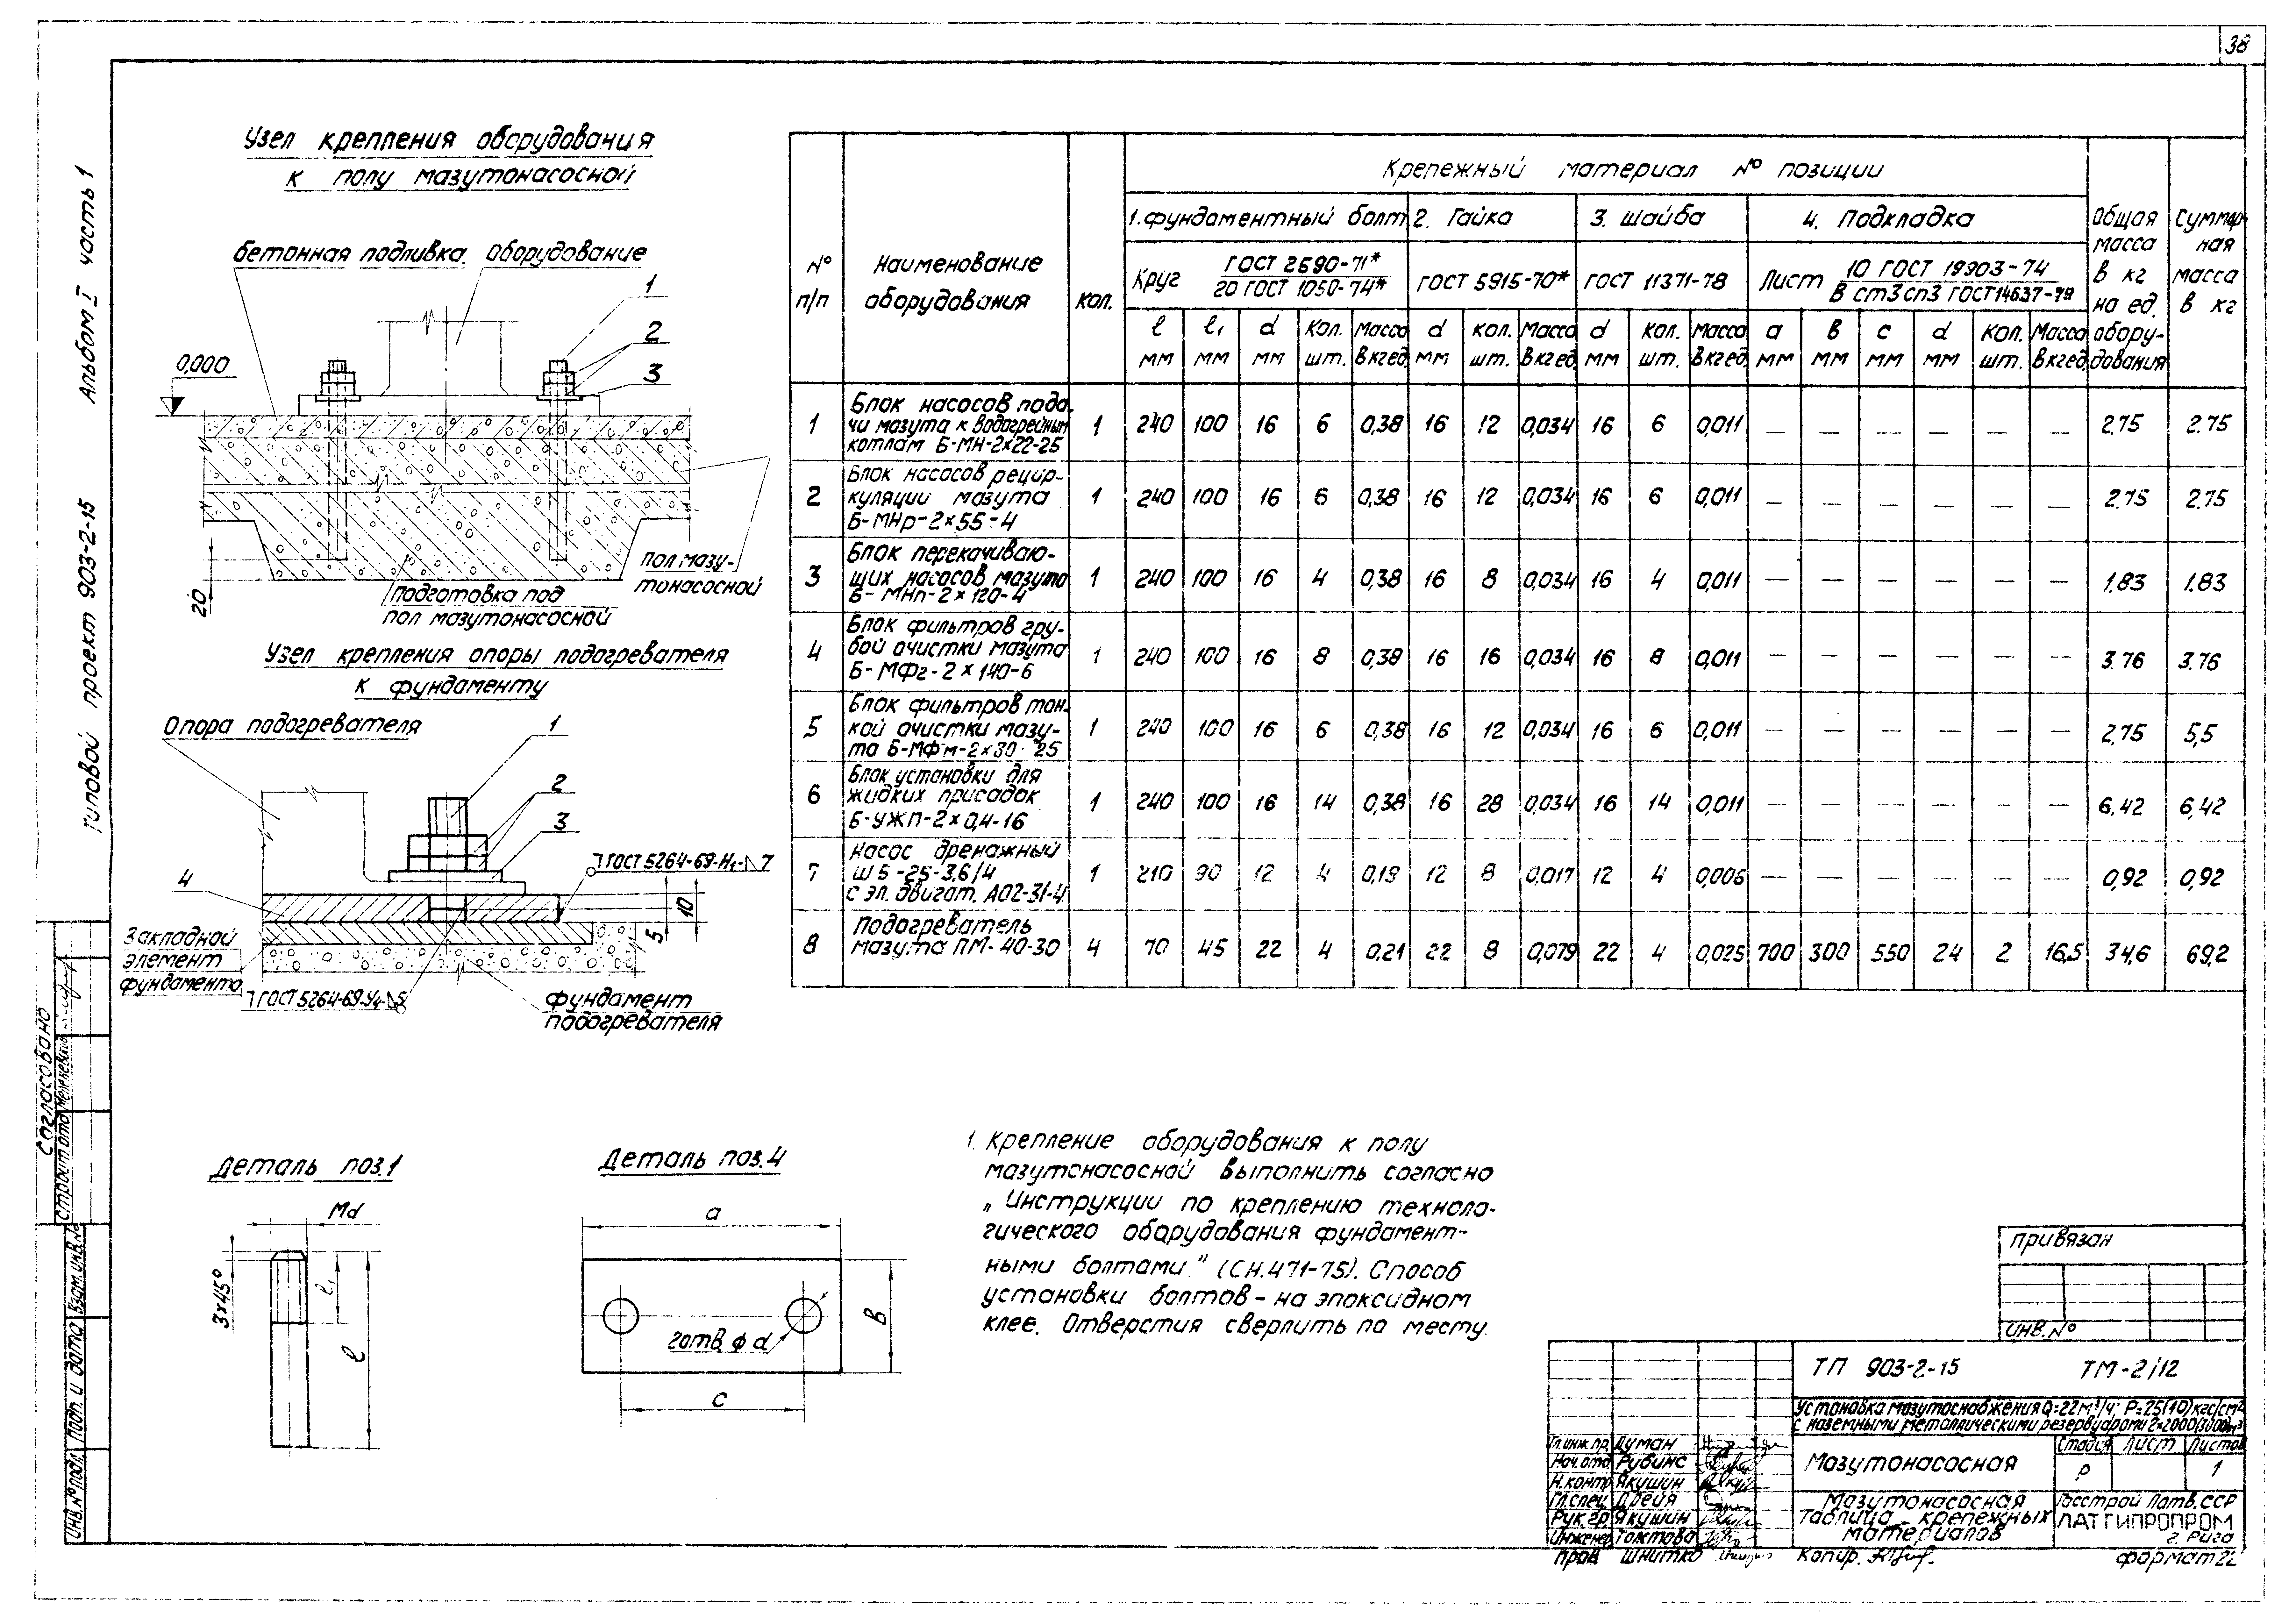 38
Альбом I часть 1
Типовой проект 903-2-15
Узел крепления оборудования
к полу мазутонасосной
бетонная подливка
Оборудование
1
2
3
0,000
20
Пол мазу-
тонасосной
Подготовка под
пол мазутонасосной
Узел крепления опоры подогревателя
к фундаменту
Опора подогревателя
1
2
3
4
ГОСТ 5264-69-Н1-◺7
10
5
Закладной
элемент
фундамента
ГОСТ 5264-69-У4-◺5
фундамент
подогревателя
№ п/п
Наименование оборудования
кол.
Крепежный материал № позиции
1. фундаментный болт 2. Гайка 3. Шайба 4. Подкладка
Круг ГОСТ 2590-71* / 20 ГОСТ 1050-74* ГОСТ 5915-70* ГОСТ 11371-78 Лист 10 ГОСТ 19903-74 / В ст3сп3 ГОСТ 14637-79
Общая масса в кг на ед. оборудования
Суммарная масса в кг
ℓ ℓ1 d Кол. Масса d кол. Масса d Кол. Масса a в c d Кол. Масса
мм мм мм шт. в кг ед. мм шт. в кг ед. мм шт. в кг ед. мм мм мм мм шт. в кг ед.
1 Блок насосов пода-
чи мазута к водогрейным
котлам Б-МН-2х22-25
1 240 100 16 6 0,38 16 12 0,034 16 6 0,011 — — — — — — 2.75 2.75
2 Блок насосов рецир-
куляции мазута
Б-МНр-2х55-4
1 240 100 16 6 0,38 16 12 0,034 16 6 0,011 — — — — — — 2.75 2.75
3 Блок перекачиваю-
щих насосов мазута
Б-МНп-2х120-4
1 240 100 16 4 0,38 16 8 0,034 16 4 0,011 — — — — — — 1.83 1.83
4 Блок фильтров гру-
бой очистки мазута
Б-МФг-2х140-6
1 240 100 16 8 0,38 16 16 0,034 16 8 0,011 — — — — — — 3.76 3.76
5 Блок фильтров тон-
кой очистки мазу-
та Б-МФм-2х30-25
1 240 100 16 6 0,38 16 12 0,034 16 6 0,011 — — — — — — 2,75 5,5
6 Блок установки для
жидких присадок
Б-УЖП-2х0,4-16
1 240 100 16 14 0,38 16 28 0,034 16 14 0,011 — — — — — — 6,42 6,42
7 Насос дренажный
Ш5-25-3,6/4
с эл. двигат. АО2-31-4
1 210 90 12 4 0,19 12 8 0,017 12 4 0,006 — — — — — — 0,92 0,92
8 Подогреватель
мазута ПМ-40-30
4 70 45 22 4 0,21 22 8 0,079 22 4 0,025 700 300 550 24 2 16,5 34,6 69,2
Деталь поз.1
Md
3х45°
ℓ1
ℓ
Деталь поз.4
a
2отв. ф d
в
c
1. Крепление оборудования к полу
мазутонасосной выполнить согласно
„Инструкции по креплению техноло-
гического оборудования фундамент-
ными болтами." (СН.471-75). Способ
установки болтов - на эпоксидном
клее. Отверстия сверлить по месту.
Согласовано
Строит.отд.
Инв.№подл. Подп. и дата Взам.инв.№
привязан
инв.№
ТП 903-2-15 ТМ-2/12
Установка мазутоснабжения Q=22м³/ч; Р=25(10)кгс/см²
с наземными металлическими резервуарами 2х2000(3000)м³
Гл.инж.пр. Думан
Нач.отд. Рубинс
Н.контр. Якушин
Гл.спец. Дрейя
Рук.гр. Якушин
Инженер Толстова
пров. Шнитко
Мазутонасосная
Стадия Лист Листов
Р 1
Мазутонасосная
Таблица крепежных
материалов
Госстрой Латв.ССР
ЛАТГИПРОПРОМ
г. Рига
Копир.
формат 22